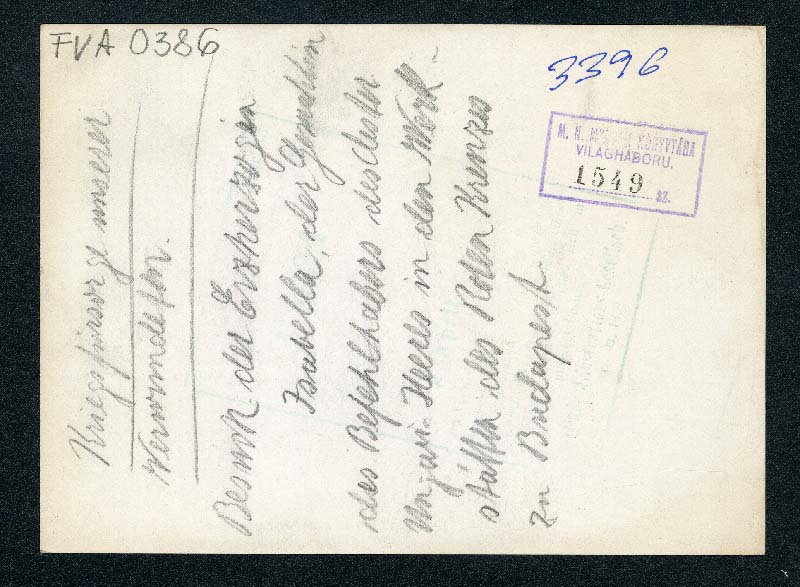 FVA 0386
3396
VILÁGHÁBORU.
1549 sz.
Kriegsfürsorge unserer
Verwundeten.
Besuch der Erzherzogin
Isabella, der Gemahlin
des Befehlshabers des öster.
Ungar. Heeres in den Werk-
stätten des Roten Kreuzes
zu Budapest.